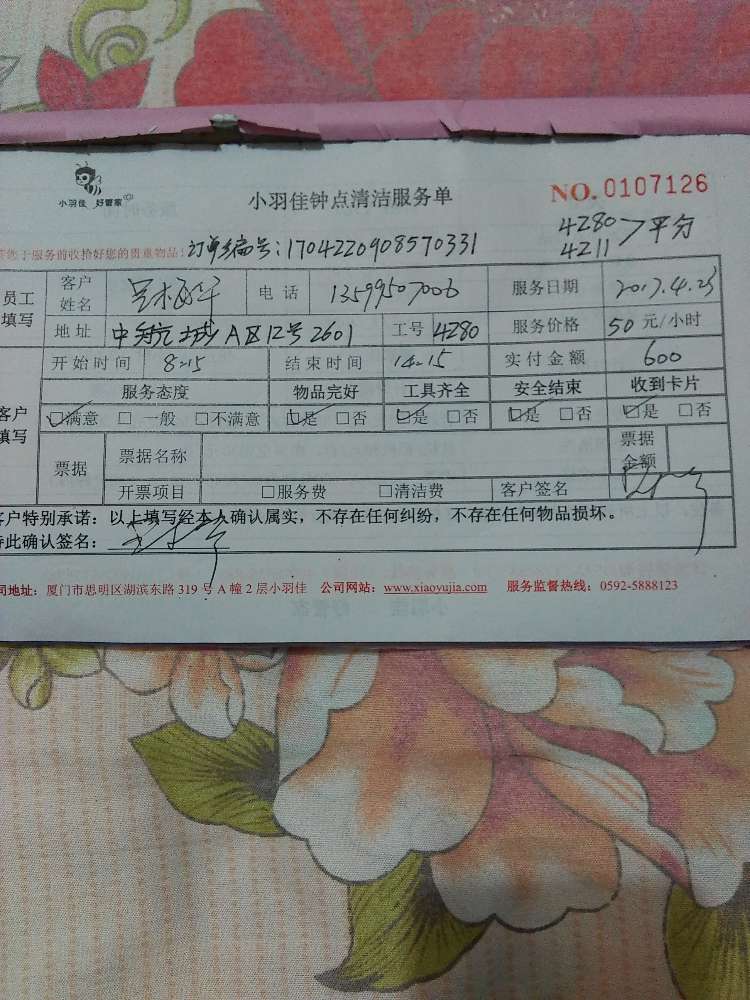 小羽佳 好管家
小羽佳钟点清洁服务单
NO. 0107126
4280 > 平分
4211
您于服务前收拾好您的贵重物品: 订单编号:1704220908570331
员工填写 客户姓名 电话 13599507006 服务日期 2017.4.23
地址 中航城A区12号2601 工号 4280 服务价格 50元/小时
开始时间 8:15 结束时间 14:15 实付金额 600
客户填写 服务态度 物品完好 工具齐全 安全结束 收到卡片
☑满意 □一般 □不满意 ☑是 □否 ☑是 □否 ☑是 □否 ☑是 □否
票据 票据名称 票据金额
开票项目 □服务费 □清洁费 客户签名
客户特别承诺:以上填写经本人确认属实,不存在任何纠纷,不存在任何物品损坏。
特此确认签名:
司地址:厦门市思明区湖滨东路 319 号 A 幢 2 层小羽佳 公司网站:www.xiaoyujia.com 服务监督热线:0592-5888123